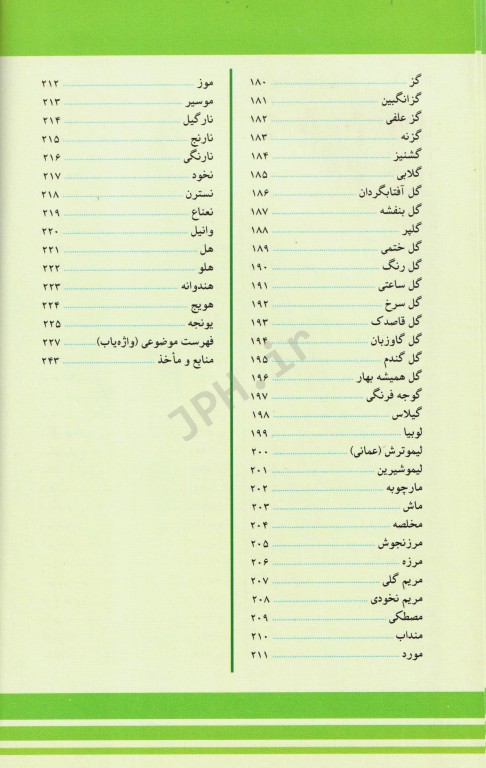 گز ۱۸۰
گزانگبین ۱۸۱
گز علفی ۱۸۲
گزنه ۱۸۳
گشنیز ۱۸۴
گلابی ۱۸۵
گل آفتابگردان ۱۸۶
گل بنفشه ۱۸۷
گلپر ۱۸۸
گل ختمی ۱۸۹
گل رنگ ۱۹۰
گل ساعتی ۱۹۱
گل سرخ ۱۹۲
گل قاصدک ۱۹۳
گل گاوزبان ۱۹۴
گل گندم ۱۹۵
گل همیشه بهار ۱۹۶
گوجه فرنگی ۱۹۷
گیلاس ۱۹۸
لوبیا ۱۹۹
لیموترش (عمانی) ۲۰۰
لیموشیرین ۲۰۱
مارچوبه ۲۰۲
ماش ۲۰۳
مخلصه ۲۰۴
مرزنجوش ۲۰۵
مرزه ۲۰۶
مریم گلی ۲۰۷
مریم نخودی ۲۰۸
مصطکی ۲۰۹
منداب ۲۱۰
مورد ۲۱۱
موز ۲۱۲
موسیر ۲۱۳
نارگیل ۲۱۴
نارنج ۲۱۵
نارنگی ۲۱۶
نخود ۲۱۷
نسترن ۲۱۸
نعناع ۲۱۹
وانیل ۲۲۰
هل ۲۲۱
هلو ۲۲۲
هندوانه ۲۲۳
هویج ۲۲۴
یونجه ۲۲۵
فهرست موضوعی (واژه‌یاب) ۲۲۷
منابع و مأخذ ۲۴۳
JPH.ir